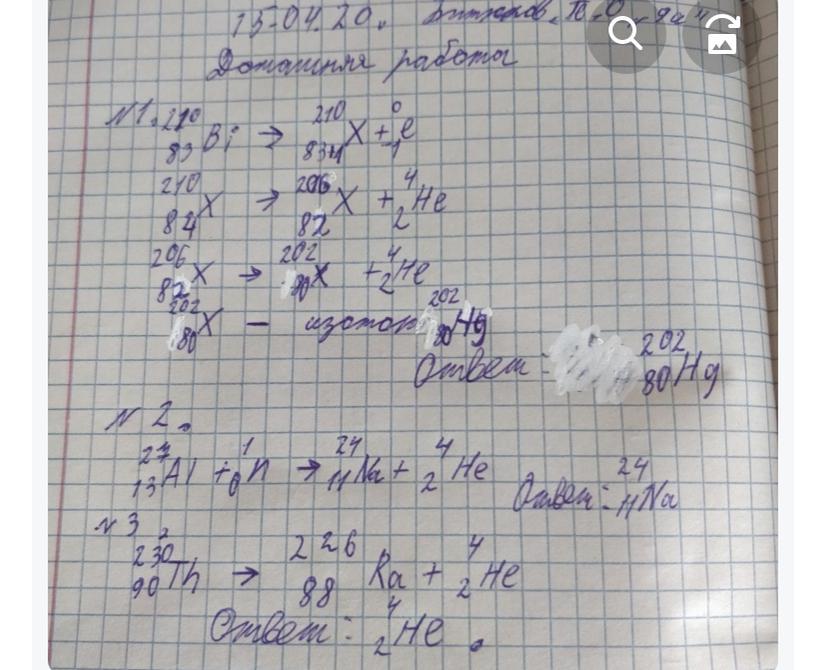 15.04.20.
Домашняя работа
№1. ²¹⁰₈₃Bi → ²¹⁰₈₃₊₁X + ⁰₋₁e
²¹⁰₈₄X → ²⁰⁶₈₂X + ⁴₂He
²⁰⁶₈₂X → ²⁰²₈₀X + ⁴₂He
²⁰²₈₀X — изотоп ²⁰²₈₀Hg
Ответ: ²⁰²₈₀Hg
№ 2.
²⁷₁₃Al + ¹₀n → ²⁴₁₁Na + ⁴₂He
Ответ: ²⁴₁₁Na
№ 3
²³⁰₉₀Th → ²²⁶₈₈Ra + ⁴₂He
Ответ: ⁴₂He.